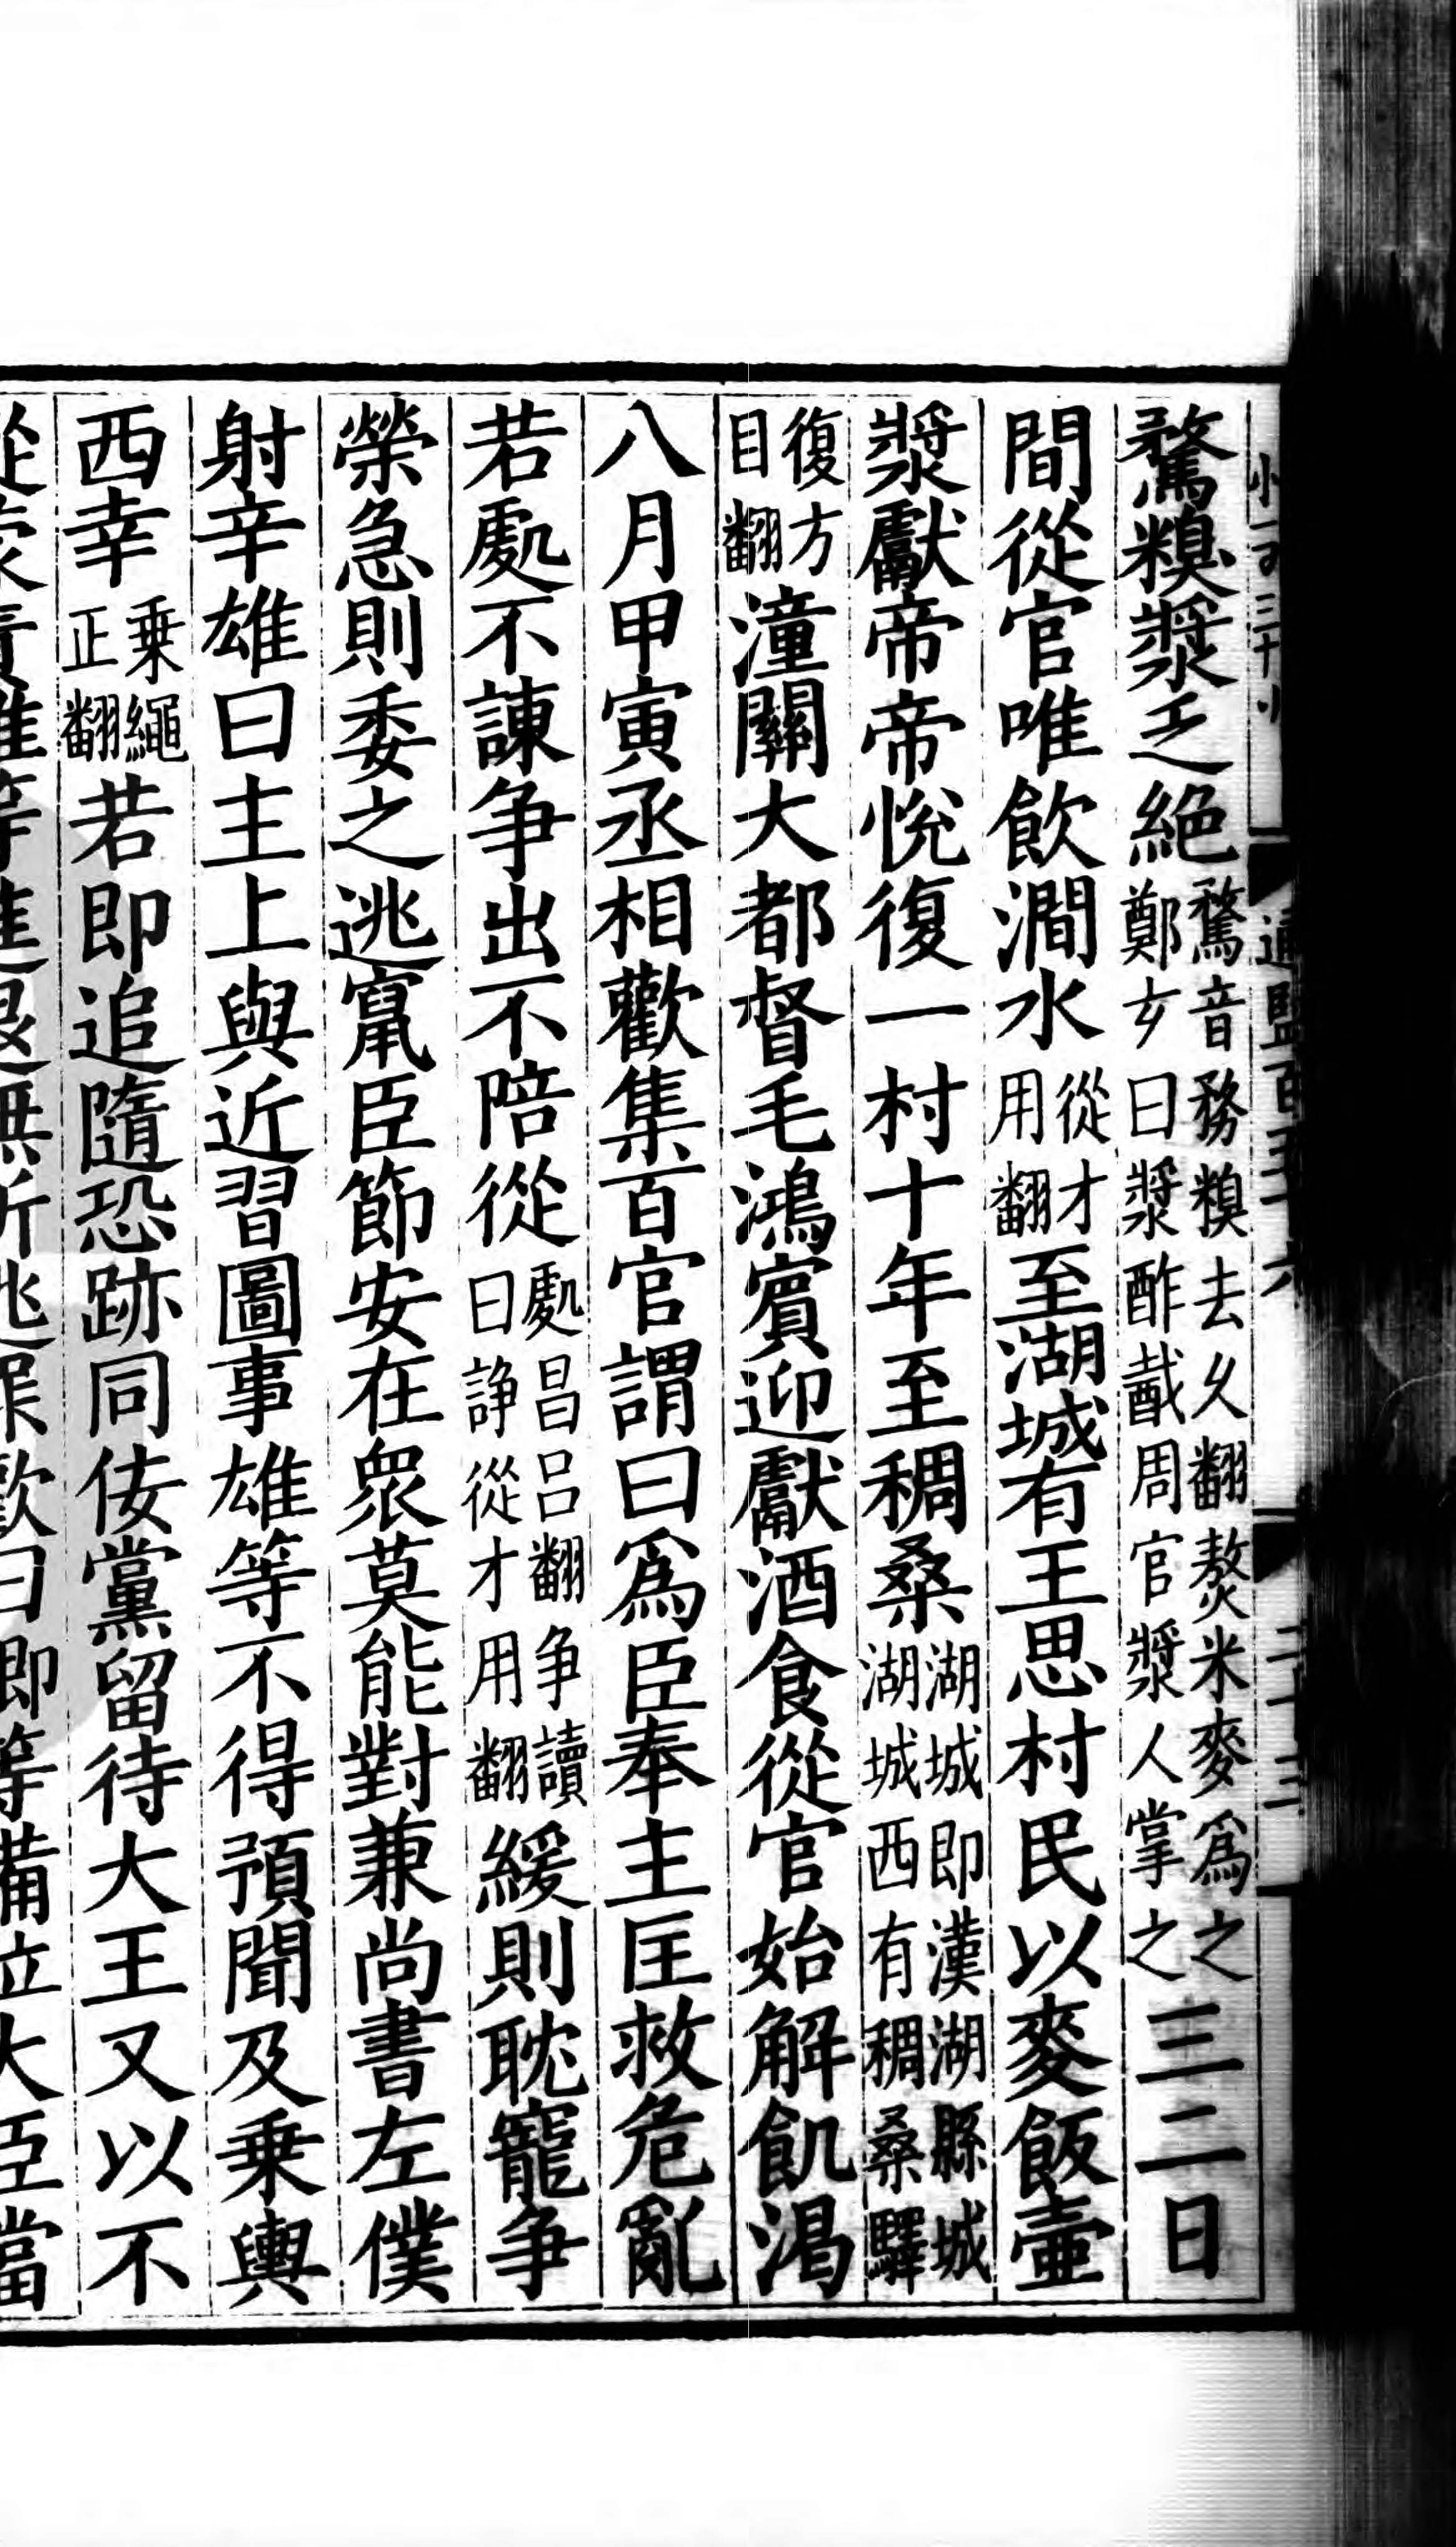 通鑑百五十六
騖糗漿乏絕騖音務糗去久翻熬米麥爲之鄭玄曰漿酢㦻周官漿人掌之三二日
間從官唯飲澗水從才用翻至湖城有王思村民以麥飯壷
漿獻帝帝悅復一村十年至稠桑湖城城即漢湖縣城湖城西有稠桑驛
復方目翻潼關大都督毛鴻賓迎獻酒食從官始解飢渴
八月甲寅丞相歡集百官謂曰爲臣奉主匡救危亂
若處不諫争出不陪從處昌吕翻争讀曰諍從才用翻緩則耽寵争
榮急則委之逃竄臣節安在衆莫能對兼尚書左僕
射辛雄曰主上與近習圖事雄等不得預聞及乗輿
西幸乗繩正翻若即追隨恐跡同佞黨留待大王又以不
從蒙責雄等進退無所逃罪歡曰卿等備位大臣當